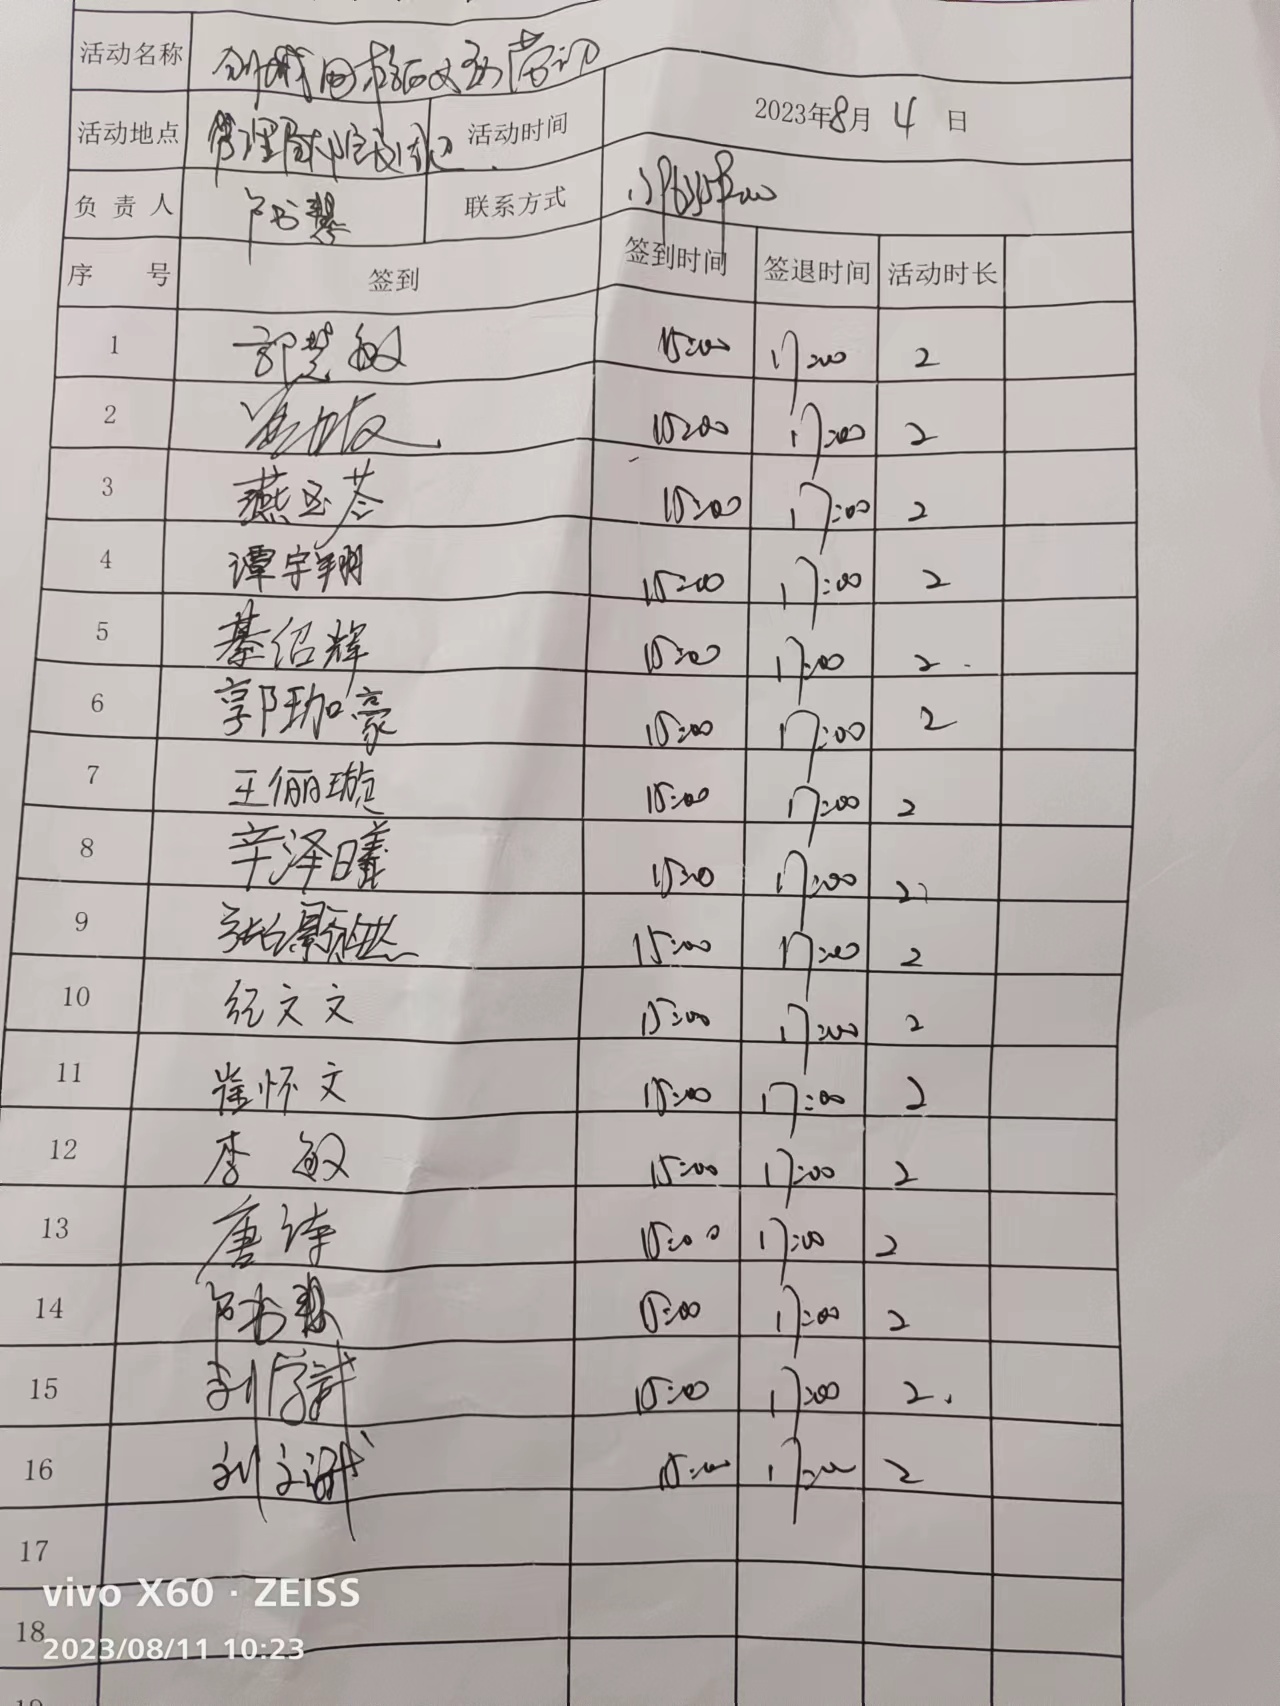 活动名称
活动地点 活动时间 2023年8月4日
负责人 卢书慧 联系方式
序号 签到 签到时间 签退时间 活动时长
1 郭慧敏 15:00 17:00 2
2 15:00 17:00 2
3 燕玉苓 15:00 17:00 2
4 谭宇翔 15:00 17:00 2
5 綦绍辉 15:00 17:00 2
6 郭珈豪 15:00 17:00 2
7 王俪璇 15:00 17:00 2
8 辛泽曦 15:00 17:00 2
9 15:00 17:00 2
10 纪文文 15:00 17:00 2
11 崔怀文 15:00 17:00 2
12 李敏 15:00 17:00 2
13 唐诗 15:00 17:00 2
14 卢书慧 15:00 17:00 2
15 15:00 17:00 2
16 15:00 17:00 2
17
vivo X60 · ZEISS
18
2023/08/11 10:23
19